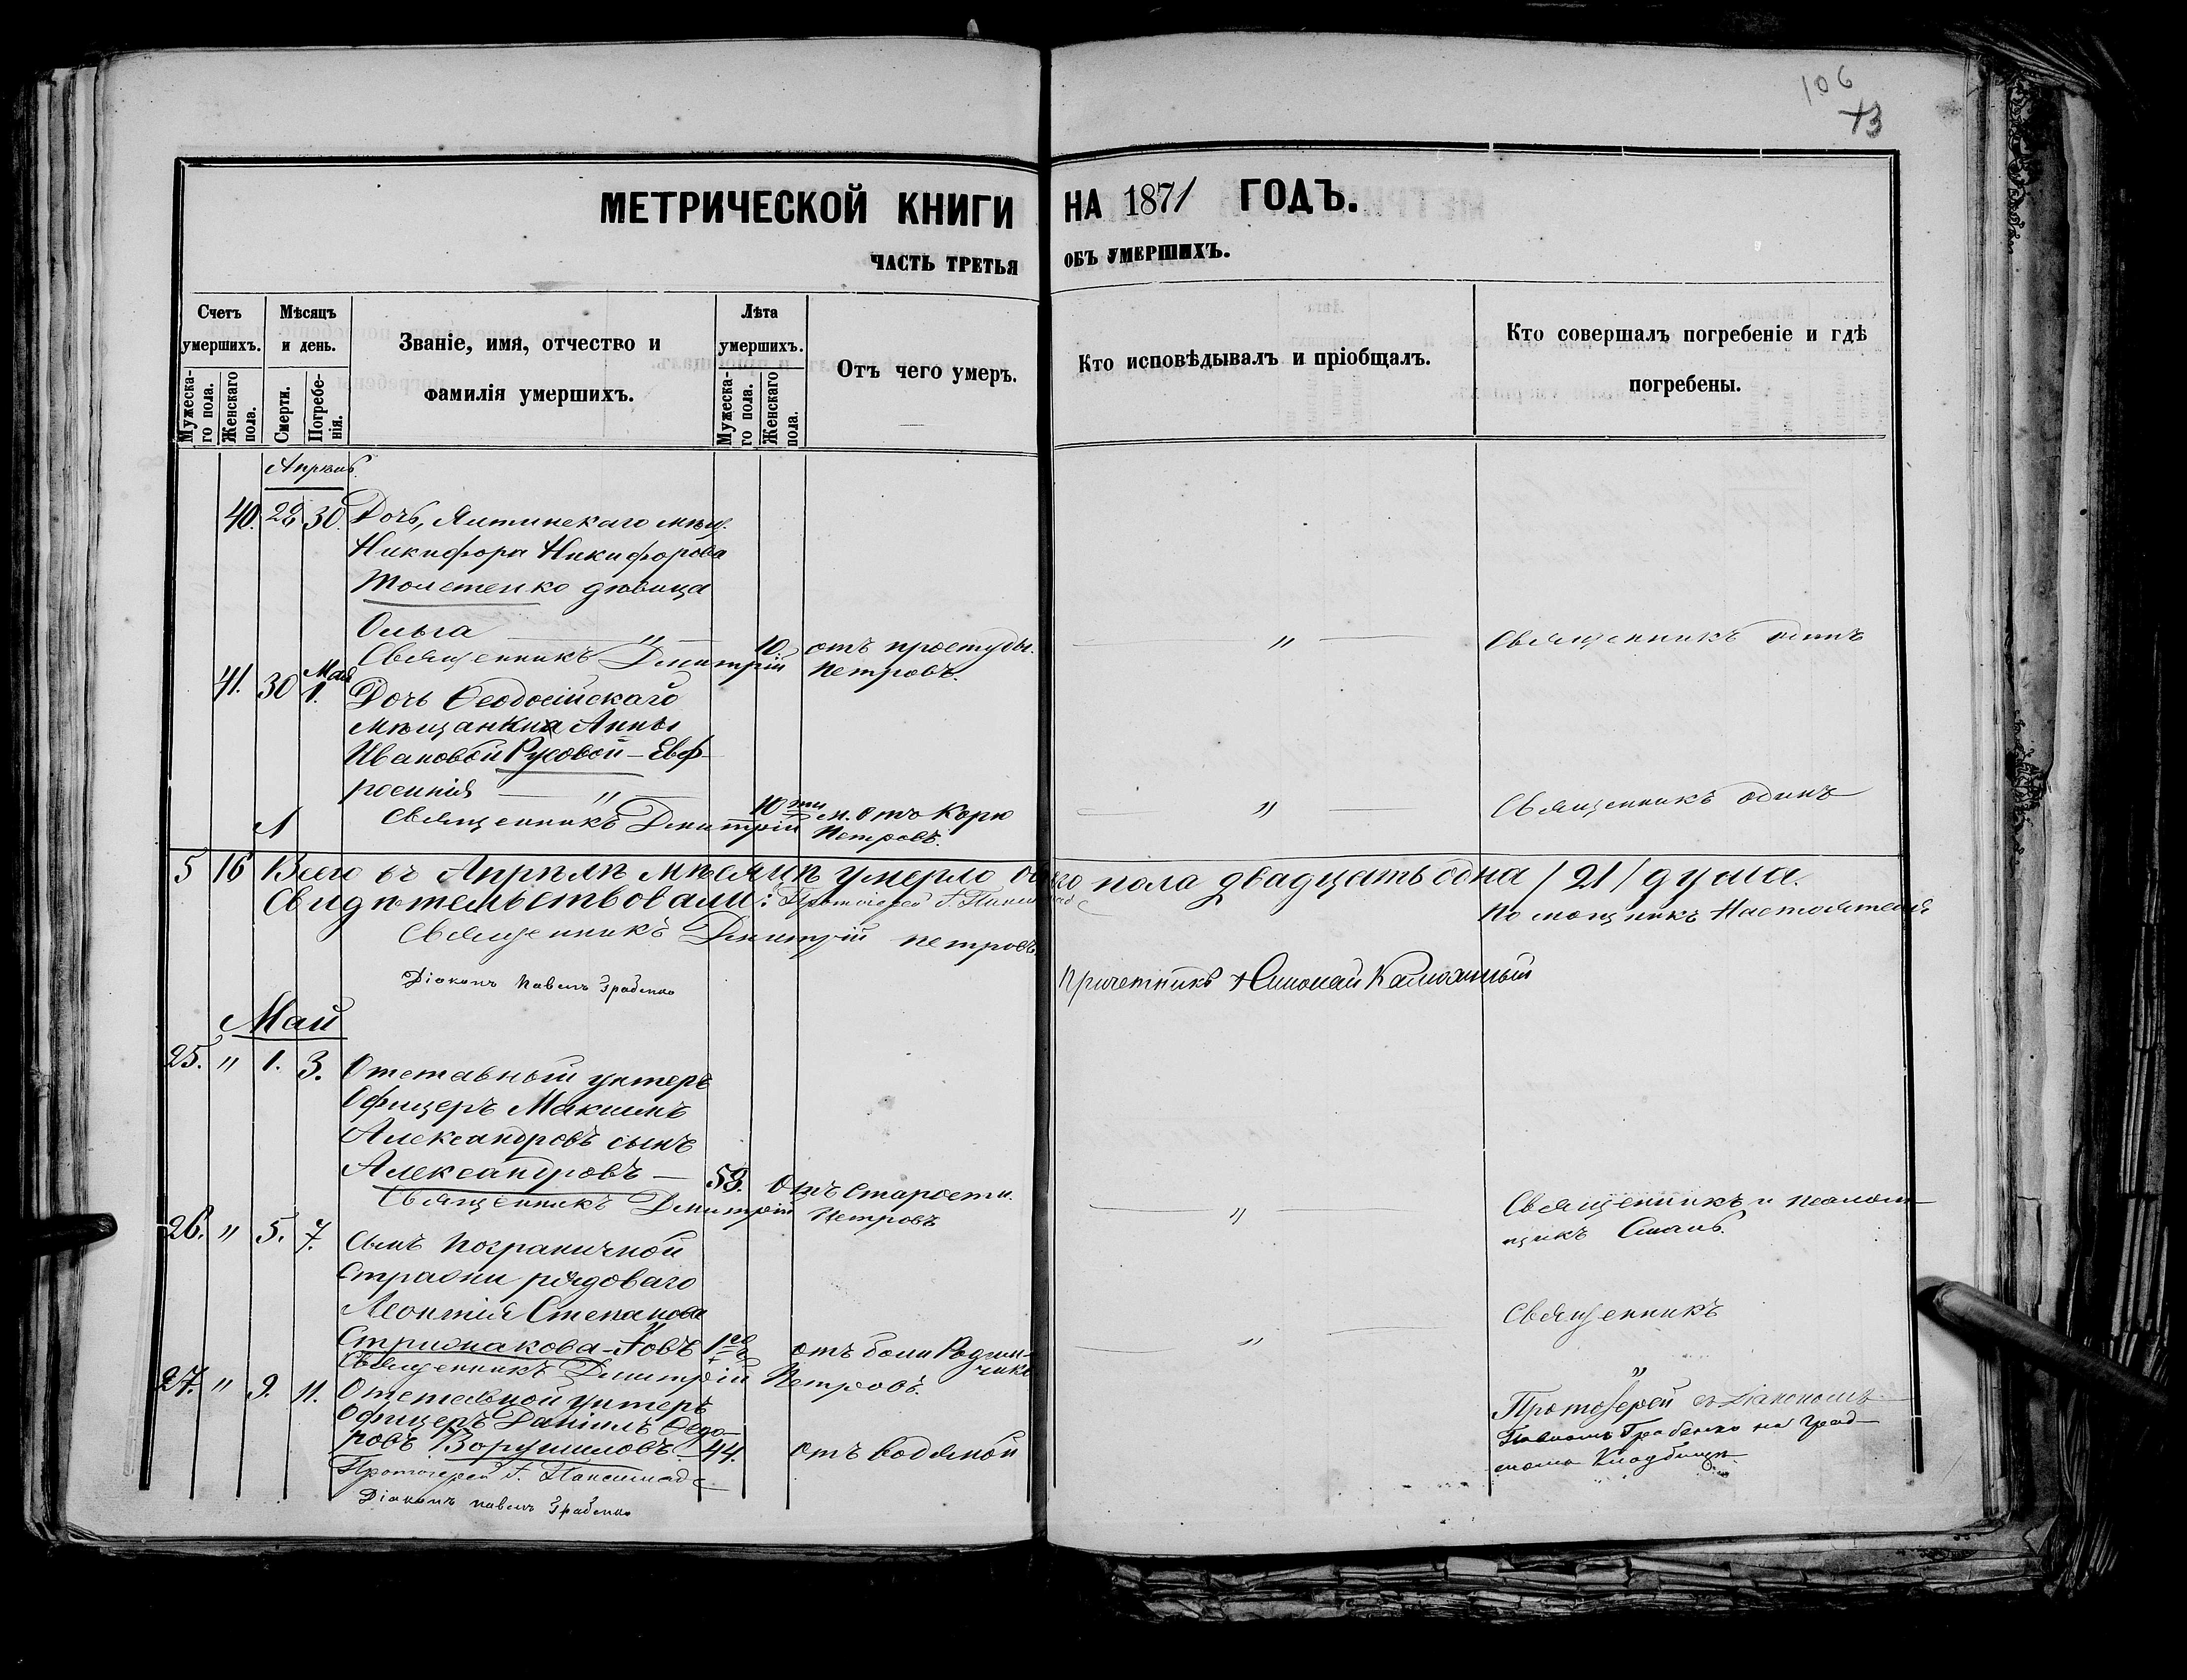 106
73
МЕТРИЧЕСКОЙ КНИГИ НА 1871 ГОДЪ.
ЧАСТЬ ТРЕТЬЯ ОБЪ УМЕРШИХЪ.
Счетъ умершихъ.
Мужескаго пола.
Женскаго пола.
Мѣсяцъ и день.
Смерти.
Погребенія.
Званіе, имя, отчество и
фамилія умершихъ.
Лѣта умершихъ.
Мужескаго пола.
Женскаго пола.
Отъ чего умеръ.
Кто исповѣдывалъ и пріобщалъ.
Кто совершалъ погребеніе и гдѣ
погребены.
Апрѣль
40. 29 30 Дочь, Ялтинскаго мѣщ.
Никифора Никифорова
Толстенко дѣвица
Ольга — „ — 10. отъ простуды. — „ — Священникъ одинъ
Священникъ Дмитрій Петровъ.
41. 30 Мая 1. Дочь Ѳеодосійскаго
мѣщанки Анны
Ивановой Русовой – Евф-
росинія — „ — 10ти м. Отъ Корю — „ — Священникъ одинъ
Священникъ Дмитрій Петровъ.
5 16 Всего въ Апрѣлѣ мѣсяцѣ умерло обоего пола двадцать одна /21/ душа.
Свидѣтельствовали: Протоіерей
Помощникъ Настоятеля
Священникъ Дмитрій Петровъ
Діаконъ Павелъ Грабенко
Причетникъ Николай
Май
25. „ 1. 3. Отставный унтеръ
Офицеръ Максимъ
Александровъ сынъ
Александровъ — 53. Отъ Старости. — „ — Священникъ и псалом-
щикъ
Священникъ Дмитрій Петровъ
26. „ 5. 7. Сынъ пограничной
Стражи рядоваго
Леонтія Степанова
Стрижакова – Іовъ отъ боли Родим-
чика — „ — Священникъ
„
Священникъ Дмитрій Петровъ.
27. „ 9. 11. Отставной унтеръ
Офицеръ Даніилъ Ѳедо-
ровъ Ворушиловъ. 44. отъ водяной
Протоіерей съ Діакономъ
Павломъ Грабенко на град-
скомъ Кладбищѣ
Протоіерей
Діаконъ Павелъ Грабенко